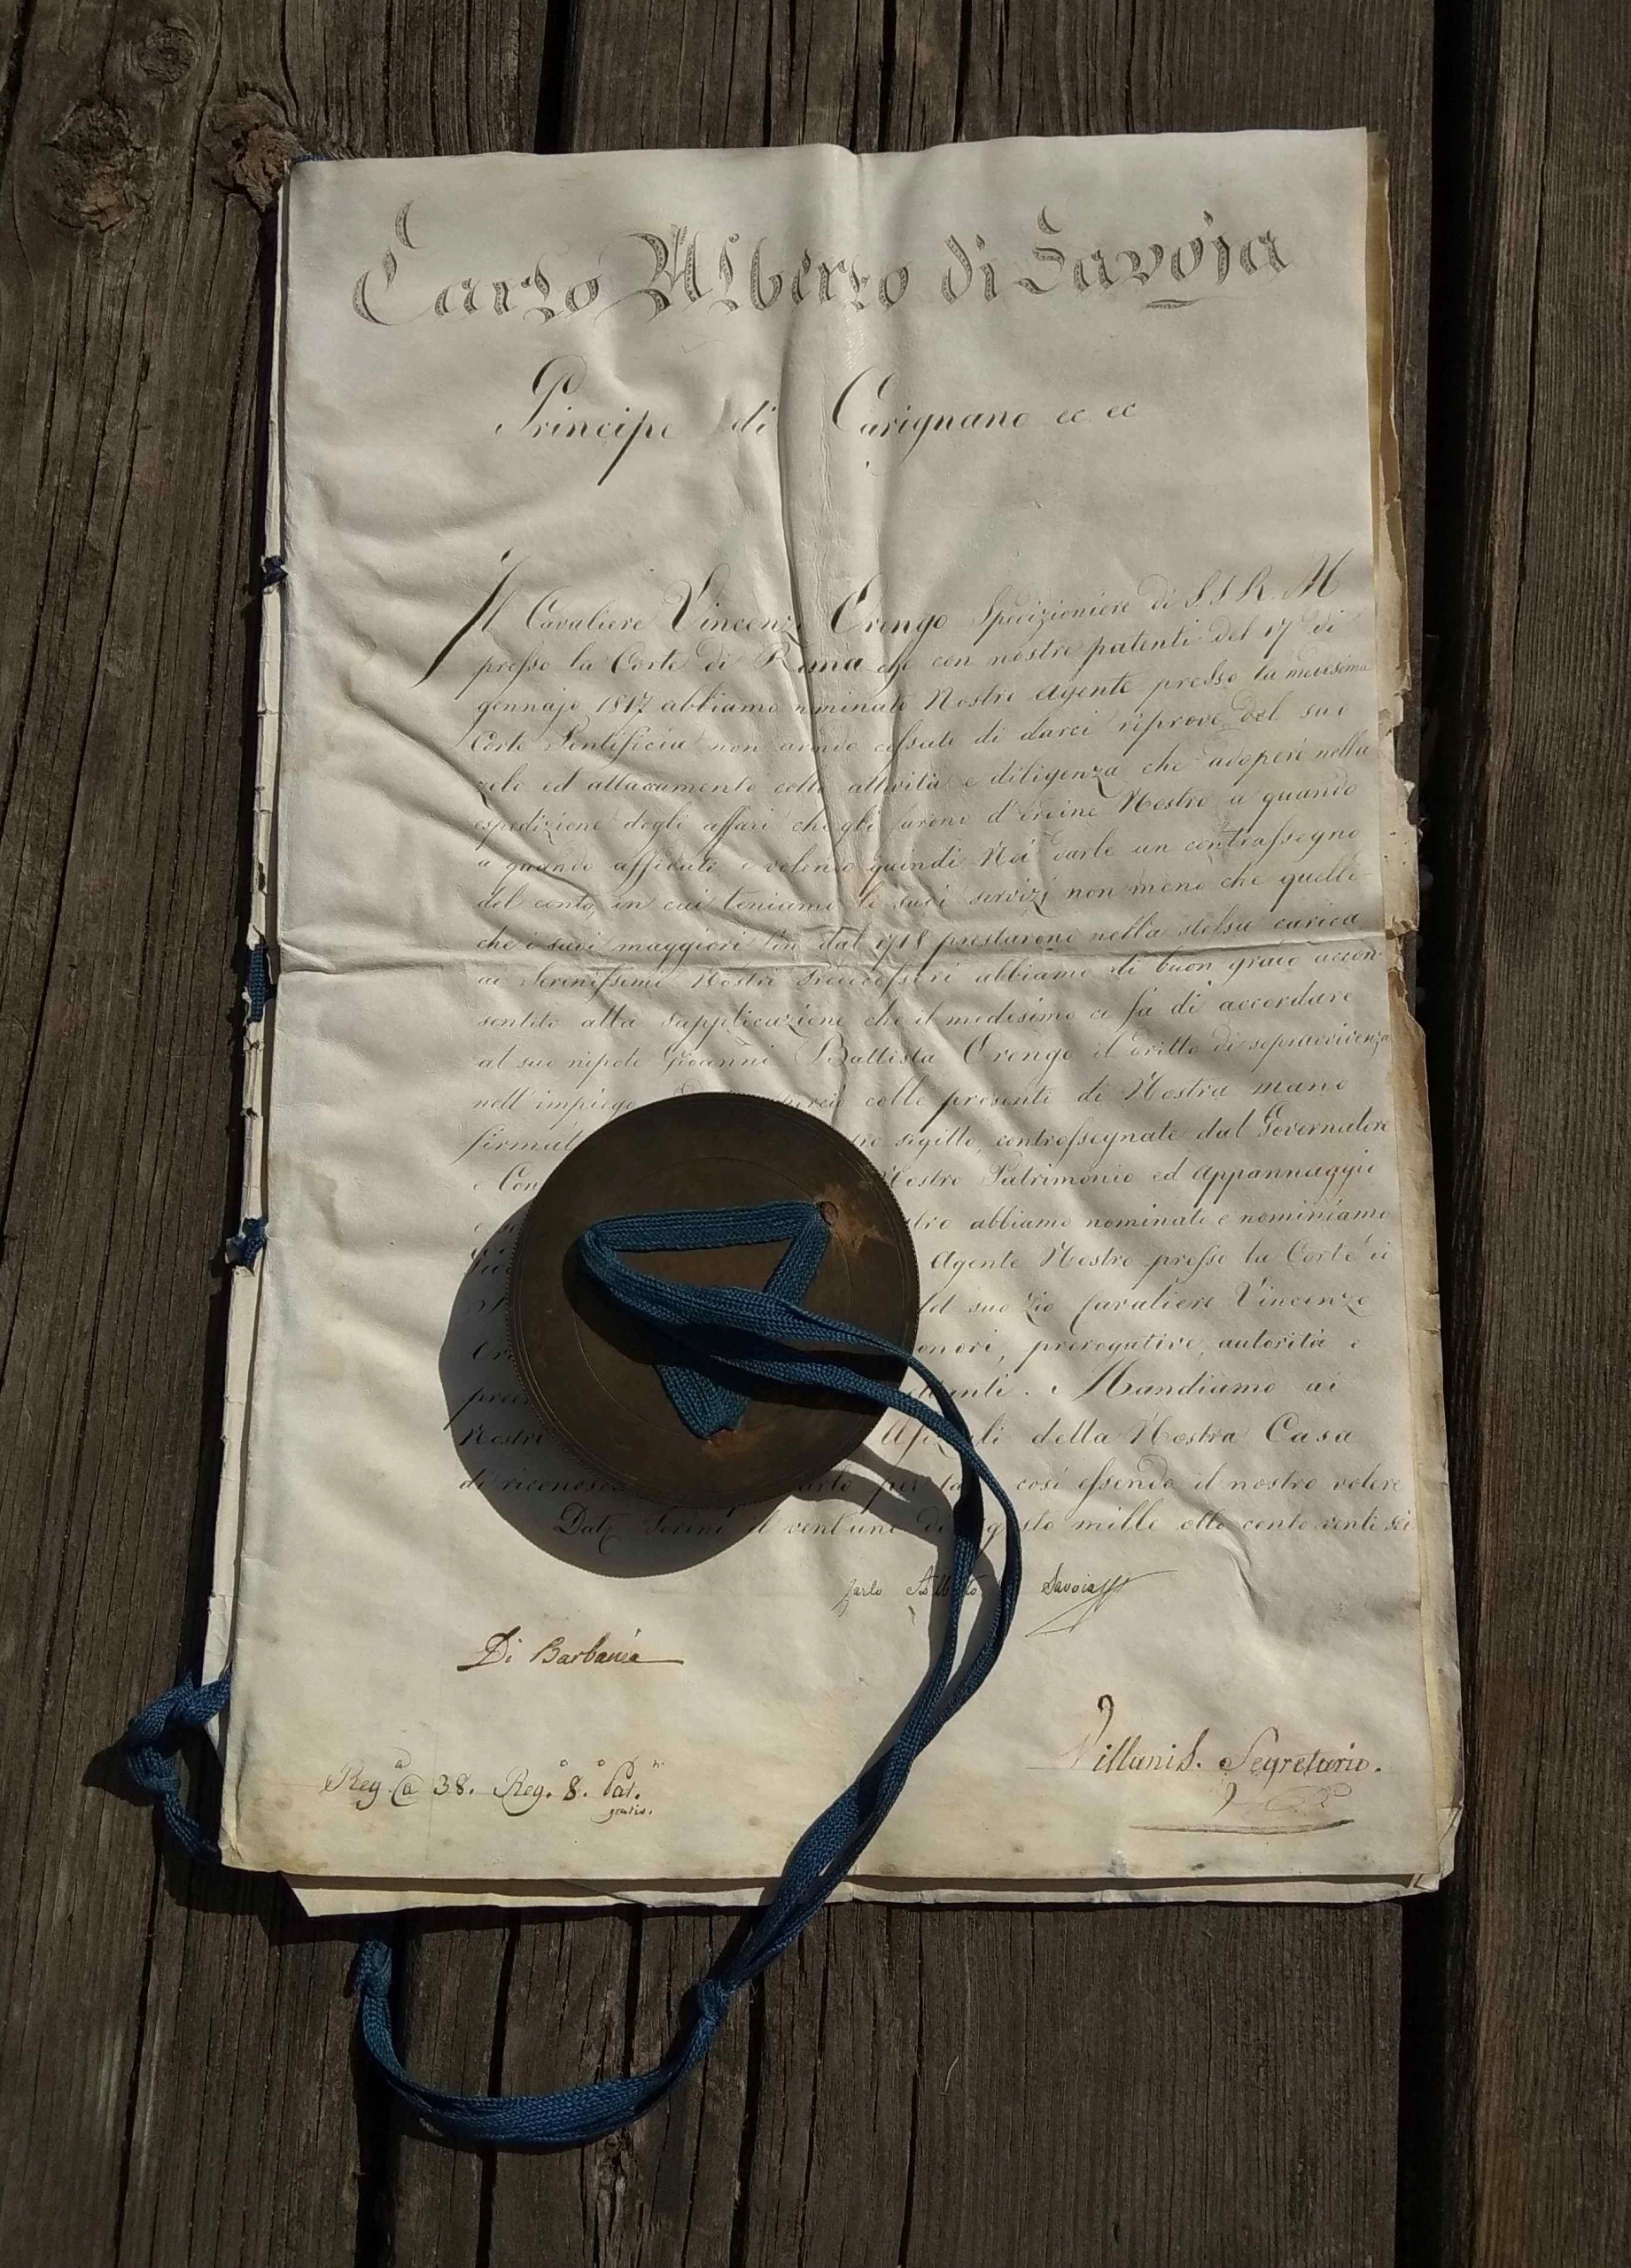 Carlo Alberto di Savoja
Principe di Carignano ec ec
Il Cavaliere Vincenzo Orengo Spedizioniere di S S R M
presso la Corte di Roma che con nostre patenti del 17 di
gennajo 1817 abbiamo nominato Nostro Agente presso la medesima
Corte Pontificia non avendo cessato di darci riprove del suo
zelo ed attaccamento colla attività e diligenza che adoperò nella
espedizione degli affari che gli furono d'ordine Nostro a quando
a quando affidati e volendo quindi Noi darle un contrassegno
del conto, in cui teniamo li suoi servizj non meno che quelli
che i suoi maggiori fin dal 1718 prestarono nella stessa carica
ai Serenissimi Nostri Predecessori abbiamo di buon grado accon
sentito alla supplicazione che il medesimo ci fa di accordare
al suo nipote Giovanni Battista Orengo il dritto di sopravvivenza
nell'impiego perciò colle presenti di Nostra mano
sigillo, contrassegnate dal Governatore
Nostro Patrimonio ed Appannaggio
abbiamo nominato e nominiamo
Agente Nostro presso la Corte di
del suo Zio Cavaliere Vincenzo
onori, prerogative, autorità e
Mandiamo ai
Nostri Uffiziali della Nostra Casa
di per tale così essendo il nostro volere
Dat. Torino il ventuno di Agosto mille otto cento venti sei
Carlo Alberto di Savoia
Di Barbania
Villanis. Segretario.
Reg.a C.a 38. Reg.o 8.o Pat.
gratis.